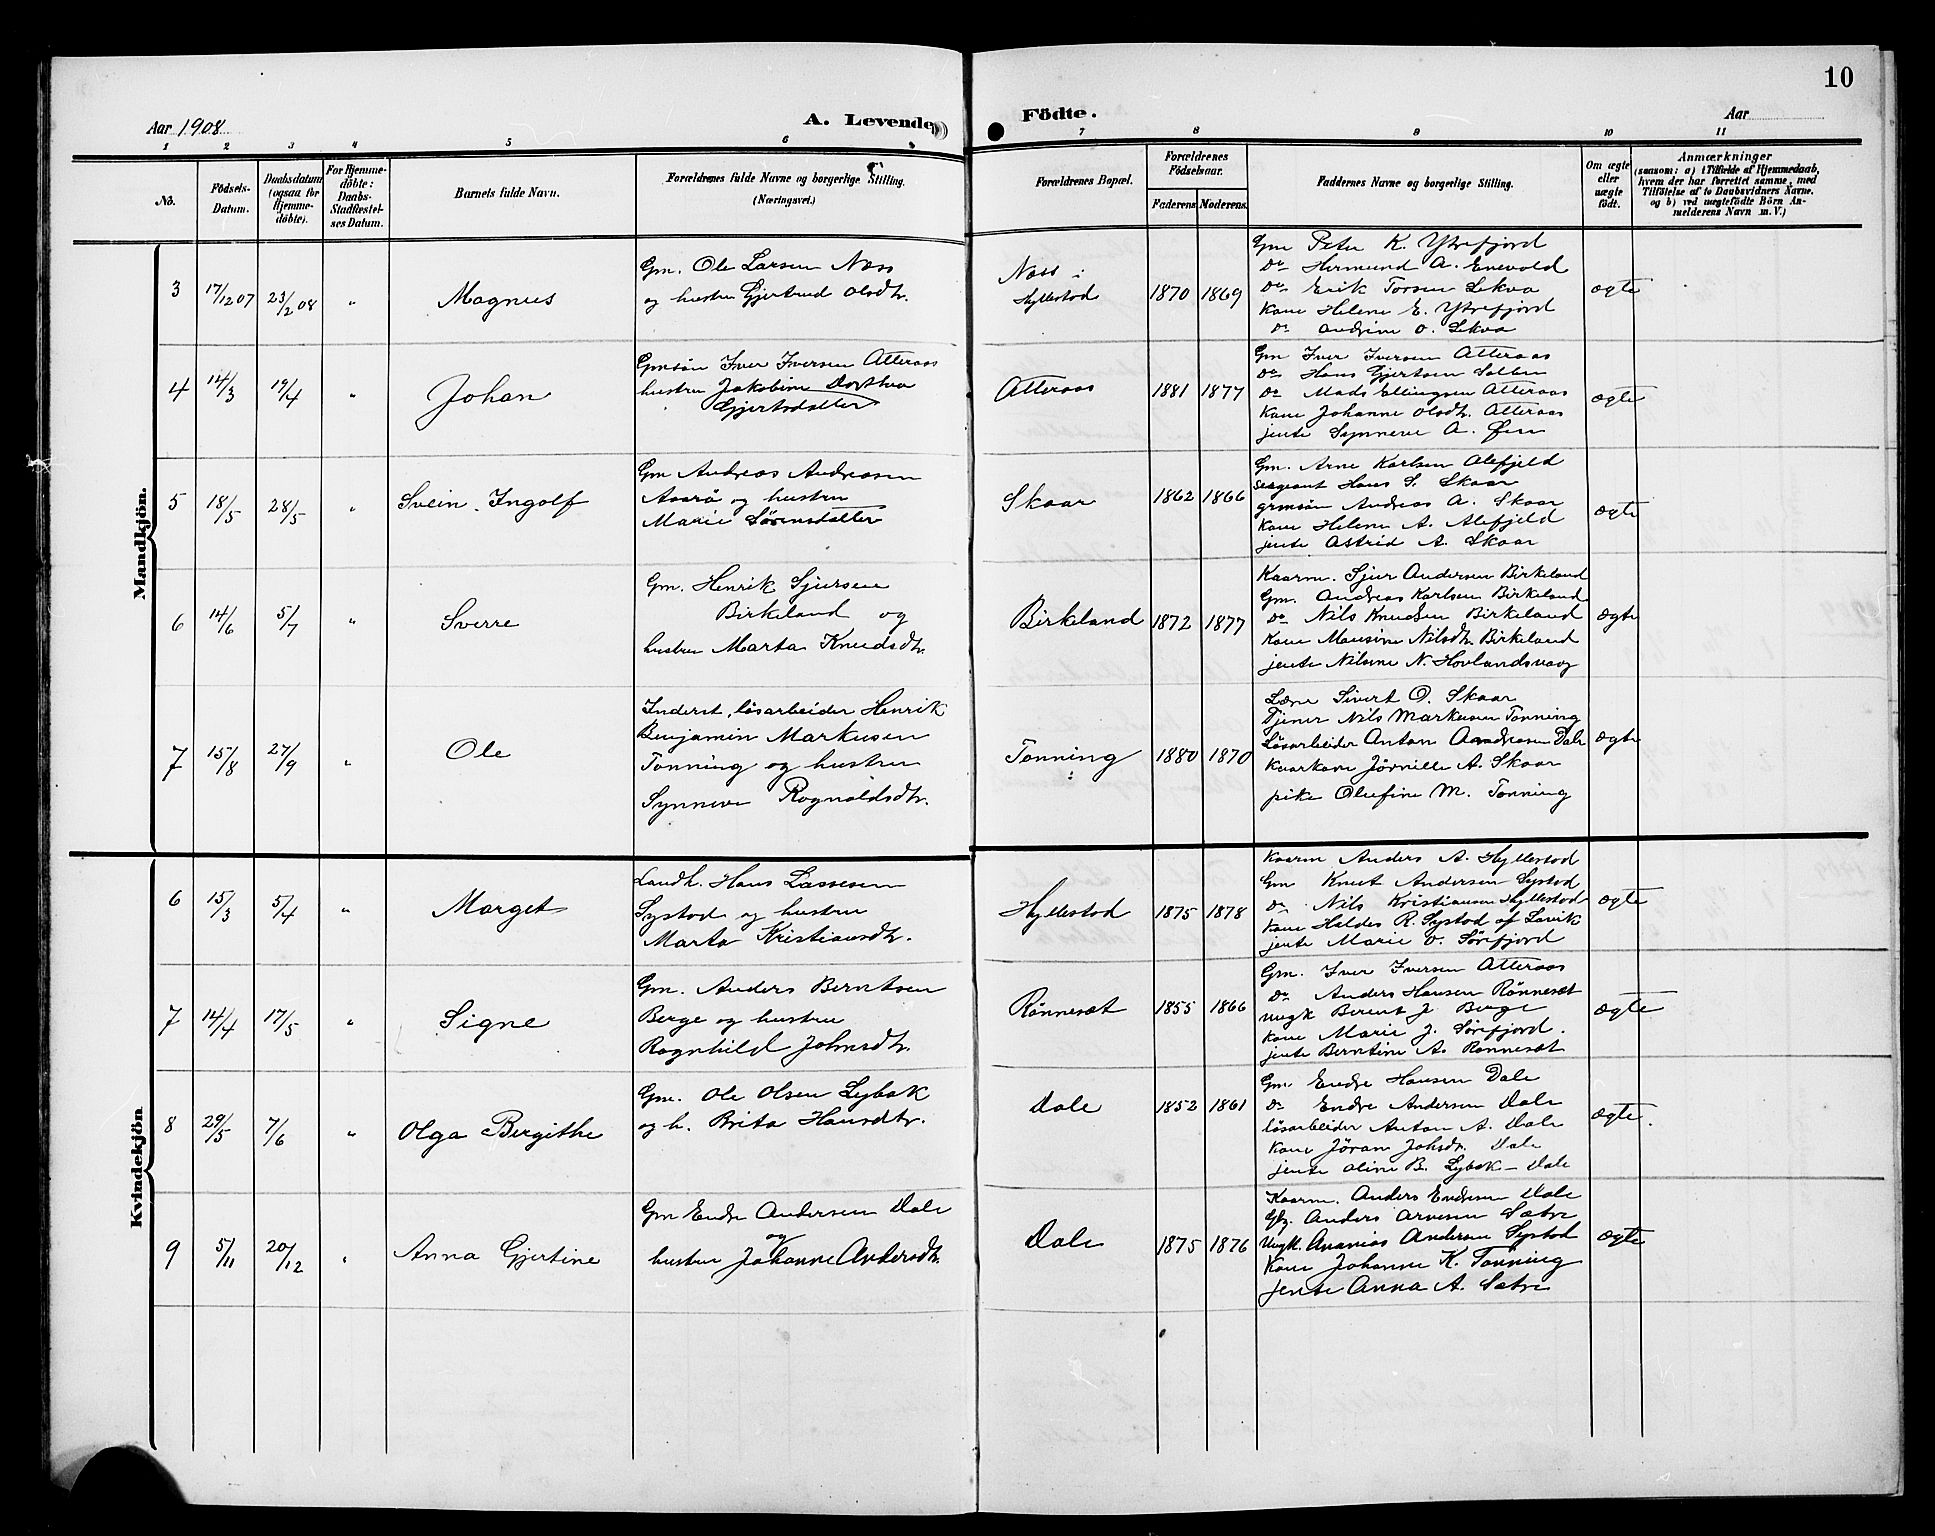 10
Aar 1908
A. Levende
Födte.
Aar
1 2 3 4 5 6 7 8 9 10 11
No.
Födsels-
Datum.
Daabsdatum
(ogsaa for
Hjemme-
döbte).
For Hjemme-
döbte:
Daabs-
Stadfæstel-
ses Datum.
Barnets fulde Navn.
Forældrenes fulde Navne og borgerlige Stilling.
(Næringsvei.)
Forældrenes Bopæl.
Forældrenes
Födselsaar.
Faderens. Moderens.
Faddernes Navne og borgerlige Stilling.
Om ægte
eller
uægte
födt.
Anmærkninger
(saasom: a) i Tilfælde af Hjemmedaab,
hvem der har forrettet samme, med
Tilföielse af to Daabsvidners Navne.
og b) ved uægtefödte Börn An-
melderens Navn m. V.)
Mandkjön.
3 17/12 07 23/2 08 " Magnus
Gm. Ole Larsen Næss
og hustru Gjertrud Olsdtr.
Næss i
Hyllestad
1870 1869
Gm Peter K. Ytrefjord
Do Hermund A. Enevold
Do Erik Torsen Lekva
Kone Helene E. Ytrefjord
Do Andrine O. Lekva
ægte
4 14/3 19/4 " Johan
Gmsön Iver Iversen Atteraas
hustru Jakobine Dorthea
Gjertsdatter
Atteraas
1881 1877
Gm Iver Iversen Atteraas
Do Hans Gjertsen
Do Mads Ellingsen Atteraas
Kone Johanne Olsdtr. Atteraas
jente Synneve A. Øen
ægte
5 18/5 28/5 " Svein Ingolf
Gm Andreas Andreasen
og hustru
Marie Sörensdatter
Skaar
1862 1866
Gm. Arne Karlsen Alefjeld
Sergeant Hans S. Skaar
grmsön Andreas A. Skaar
Kone Helene A. Alefjeld
jente Astrid A. Skaar
ægte
6 14/6 5/7 " Sverre
Gm. Henrik Sjursen
Birkeland og
hustru Marta Knudsdtr.
Birkeland
1872 1877
Kaarm. Sjur Andersen Birkeland
Gm. Andreas Karlsen Birkeland
Do Nils Knudsen Birkeland
Kone Mausine Nilsdtr. Birkeland
jente Nilsine N. Hovlandsvaag
ægte
7 15/8 27/9 " Ole
Inderst, lösarbeider Henrik
Benjamin Markusen
Tonning og hustru
Synneve Ragnaldsdtr.
Tonning
1880 1870
Sivert O. Skaar
Tjener Nils Markusen Tonning
Lösarbeider Anton Andreasen Dale
Kaarkone Jörnille A. Skaar
pike Olufine M. Tonning
ægte
Kvindekjön.
6 15/3 5/4 " Marget
Landh. Hans Lassesen
Systad og hustru
Marta Kristiansdtr.
Hyllestad
1875 1878
Kaarm Anders A. Hyllestad
Gm Knut Andersen Systad
Do Nils Kristiansen Hyllestad
Kone Haldis R. Systad af Lavik
jente Marie O. Sörefjord
ægte
7 14/4 17/5 " Signe
Gm. Anders Berntsen
Berge og hustru
Ragnhild Johnsdtr.
Rönnesæt
1855 1866
Gm. Iver Iversen Atteraas
Do Anders Hansen Rönnesæt
Ungk Berent J Berge
Kone Marie J. Sörefjord.
jente Berntine A. Rönnesæt
ægte
8 29/5 7/6 " Olga Bergithe
Gm. Ole Olsen Lybak
og h. Brita Hansdtr.
Dale
1852 1861
Gm. Endre Hansen Dale
Do Endre Andersen Dale
lösarbeider Anton A. Dale
Kone Jöran Johsdtr. Dale
jente Oline B. Lybak - Dale
ægte
9 5/11 20/12 " Anna Gjertine
Gm Endre Andersen Dale
og
hustru Johanne Andersdtr.
Dale
1875 1876
Kaarm. Anders Endresen Dale
Gbr. Anders Arnesen Sætre
Ungk. Ananias Andersen Systad
Kone Johanne K. Tönning
Jente Anna A. Sætre
ægte